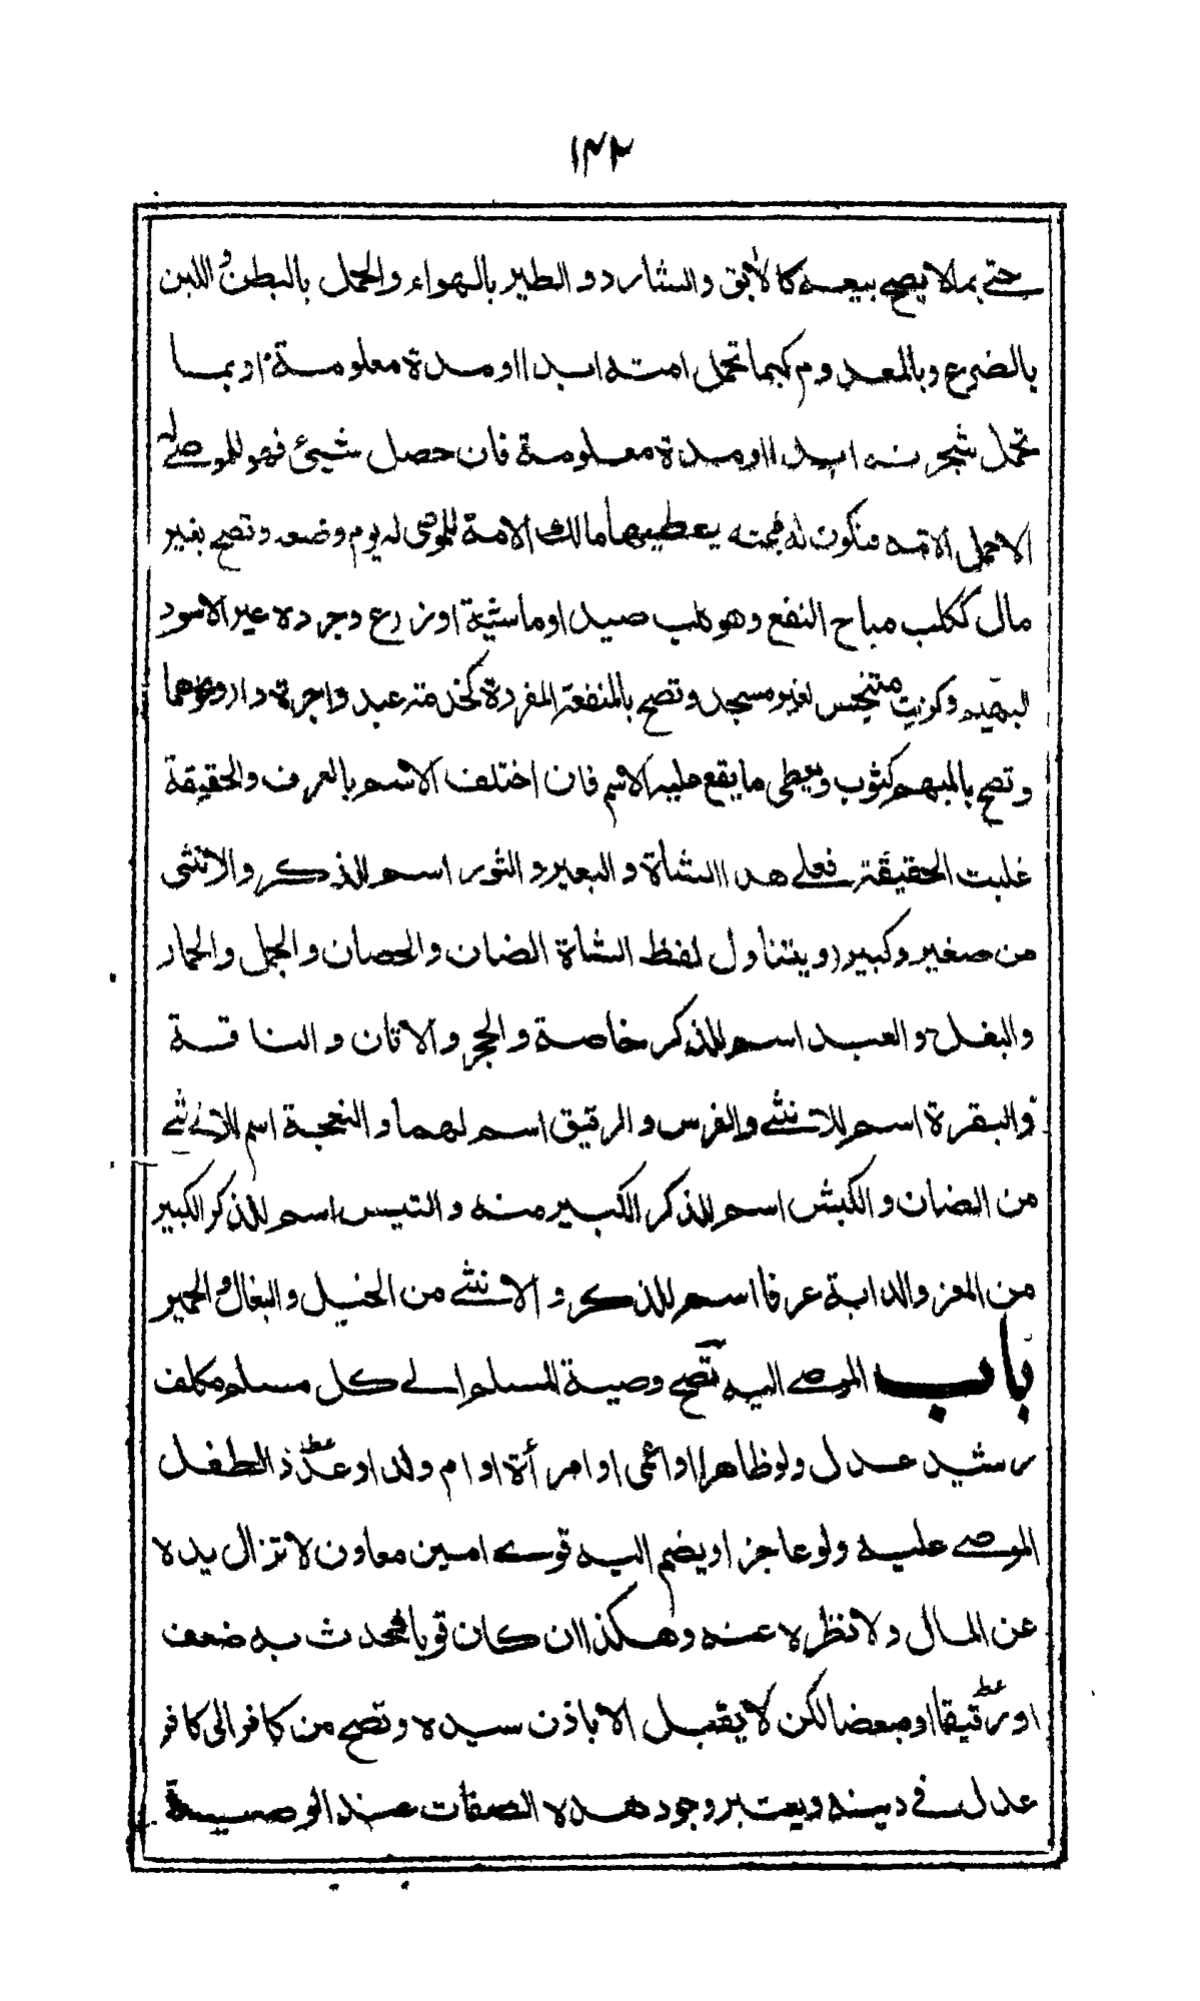 ١٤٢
حتے بما لا يصح بيعه كالأبق والشارد و الطير بالهواء والحمل بالبطن و اللبن
بالضرع وبالمعدوم كبما تحمل امته ابدا او مدة معلومة او بما
تحمل شجرته ابدا او مدة معلومة فان حصل شيئ فهو للموصے له
الا حمل الامة فتكون له قيمته يعطيها مالك الامة للموصى له يوم وضعه وتصح بغير
مال ككلب مباح النفع وهو كلب صيد او ماشية او زرع وجرده غير الاسود
البهيم وكزيت متنجس لغير مسجد وتصح بالمنفعة المفردة كخدمة عبد واجرة دار ونحوهما
وتصح بالمبهم كثوب ويعطى ما يقع عليه الاسم فان اختلف الاسم بالعرف والحقيقة
غلبت الحقيقة فعلے هذا الشاة و البعير و الثور اسم للذكر والانثى
من صغير وكبير ويتناول لفظ الشاة الضان والحصان والجمل والحمار
والبغل والعبد اسم للذكر خاصة والحجر والاتان والناقة
والبقرة اسم للانثے والفرس والرقيق اسم لهما والنعجة اسم للانثے
من الضان والكبش اسم للذكر الكبير منه والتيس اسم للذكر الكبير
من المعز والدابة عرفا اسم للذكر و الانثے من الخيل والبغال والحمير
باب الموصے اليه تصح وصية المسلم الے كل مسلم مكلف
رشيد عدل ولو ظاهرا او اعمى او امرأة او ام ولد او عدّ الطفل
الموصے عليه ولو عاجز او يضم اليه قوے امين معاون لا تزال يده
عن المال ولا نظره عنه وهكذا ان كان قويا فحدث به ضعف
او رقيقا او مبعضا لكن لا يقبل الا باذن سيده وتصح من كافر الى كافر
عدل في دينه ويعتبر وجود هذه الصفات عند الوصية